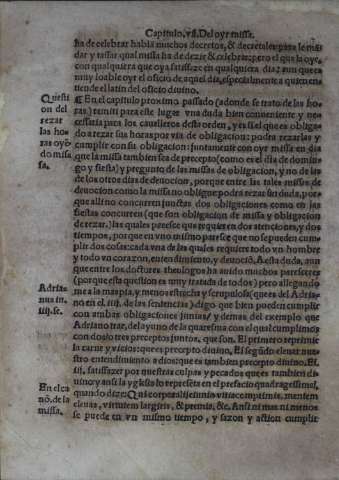 Capitulo. vii. Del oyr misse.
ha de celebrar habla muchos decretos, & decretales para le mã
dar y tassar qual missa ha de dezir & celebrar: pero el que la oye,
con qualquiera que oya satisfaze en qualquiera dia: aun que es
muy loable oyr el oficio de aquel dia, especialmente a quien en
tiende el latin del oficio divino.
Questi
on del
rezar
las ho
ras oyẽ
do mis
sa.
¶ En el capitulo proximo passado (adonde se trato de las ho
ras) remiti para este lugar vna duda bien conueniente y ne
cessaria para los caualleros desta orden, y es si el que es obliga
do a rezar sus horas por via de obligacion: podra rezarlas y
cumplir con su obligacion: juntamente con oyr missa en dia
que la missa tambien sea de precepto (como es el dia de domin
go y fiesta) y pregunto de las missas de obligacion, y no de las
de los otros dias de deuocion, porque entre las tales missas de
deuocion como la missa no obligue: podra rezar sin duda, por
que alli no concurren junctas dos obligaciones como en las
fiestas concurren (que son obligacion de missa y obligacion
de rezar.) las quales parece que requieren dos atenciones, y dos
tiempos, por que en vn mismo parece que no se pueden cum
plir dos cosas: cada vna de las quales requiere todo vn hombre
y todo vn coraçon, entendimiento, y deuociõ, A esta duda, aun
que entre los doctores theologos ha auido muchos paresceres
(por que esta question es muy tratada de todos) pero allegando
Adria
nus in.
iiij. se.
me a la mas pia, y menos estrecha y scrupulosa (que es del Adria
no en el. iiij. de las sentencias) digo que bien pueden cumplir
con ambas obligaciones juntas: y demas del exemplo que
Adriano trae, del ayuno de la quaresma con el qual cumplimos
con dos lo tres preceptos juntos, que son. El primero reprimir
la carne y vicios: que es precepto divino. El segũdo eleuar nue
stro entendimiento a dios: que es tambien precepto diuino. El.
iij. satisfazer por nuestras culpas y pecados que es tambien di
En el ca
nõ. de la
missa.
uino: y ansi la yglesia lo represẽta en el prefacio quadragesimal,
quando dize: Qui corporali jejunio vitia comprimis, mentem
eleuas, virtutem largiris, & premia, &c. Ansi ni mas ni menos
se puede en vn mismo tiempo, y sazon y action cumplir